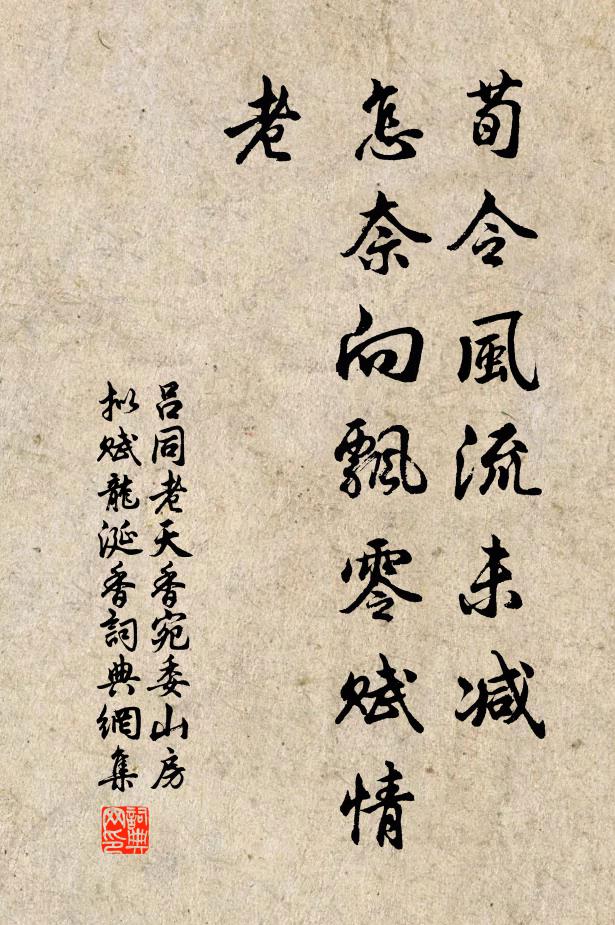 荀令風流未減
怎奈向飄零赋情
老
吕同老天香宛委山房
拟赋龍涎香詞典網集
詞典
网印